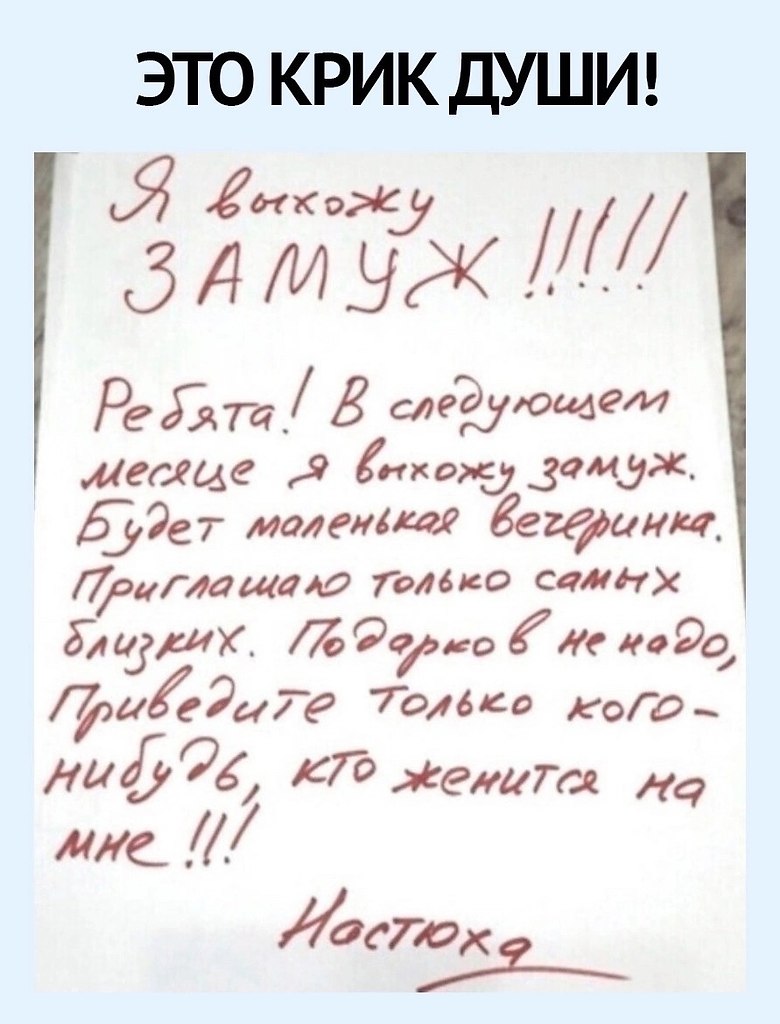 ЭТО КРИК ДУШИ!
Я выхожу
ЗАМУЖ !!!!!
Ребята! В следующем
месяце я выхожу замуж.
Будет маленькая вечеринка.
Приглашаю только самых
близких. Подарков не надо,
Приведите только кого-
нибудь, кто женится на
мне!!!
Настюха